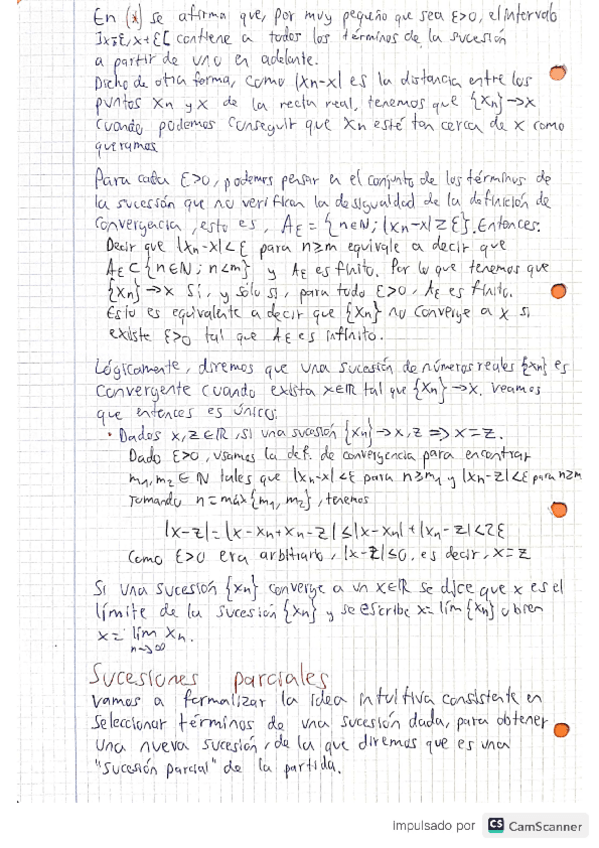 En (*) se afirma que, por muy pequeño que sea ε>0, el intervalo
]x-ε, x+ε[ contiene a todos los términos de la sucesión
a partir de uno en adelante.
Dicho de otra forma, como |xn-x| es la distancia entre los
puntos xn y x de la recta real, tenemos que {xn}→x
cuando podemos conseguir que xn esté tan cerca de x como
queramos
Para cada ε>0, podemos pensar en el conjunto de los términos de
la sucesión que no verifican la desigualdad de la definición de
convergencia, esto es, Aε = {n∈N; |xn-x| ≥ ε}. Entonces.
Decir que |xn-x|<ε para n≥m equivale a decir que
Aε⊂{n∈N; n<m} y Aε es finito. Por lo que tenemos que
{xn}→x si, y sólo si, para todo ε>0, Aε es finito.
Esto es equivalente a decir que {xn} no converge a x si
existe ε>0 tal que Aε es infinito.
Lógicamente, diremos que una sucesión de números reales {xn} es
convergente cuando exista x∈R tal que {xn}→x. veamos
que entonces es único:
• Dados x, z∈R, si una sucesión {xn}→x, z ⇒ x=z.
Dado ε>0, usamos la def. de convergencia para encontrar
m1, m2 ∈ N tales que |xn-x|<ε para n≥m1 y |xn-z|<ε para n≥m
Tomando n=máx{m1, m2}, tenemos
|x-z|=|x-xn+xn-z|≤|x-xn|+|xn-z|<2ε
Como ε>0 era arbitrario, |x-z|≤0, es decir, x=z
Si una sucesión {xn} converge a un x∈R se dice que x es el
límite de la sucesión {xn} y se escribe x=lím{xn} o bien
x= lím xn.
n→∞
Sucesiones parciales
Vamos a formalizar la idea intuitiva consistente en
seleccionar términos de una sucesión dada, para obtener
una nueva sucesión, de la que diremos que es una
"sucesión parcial" de la partida.
Impulsado por CS CamScanner